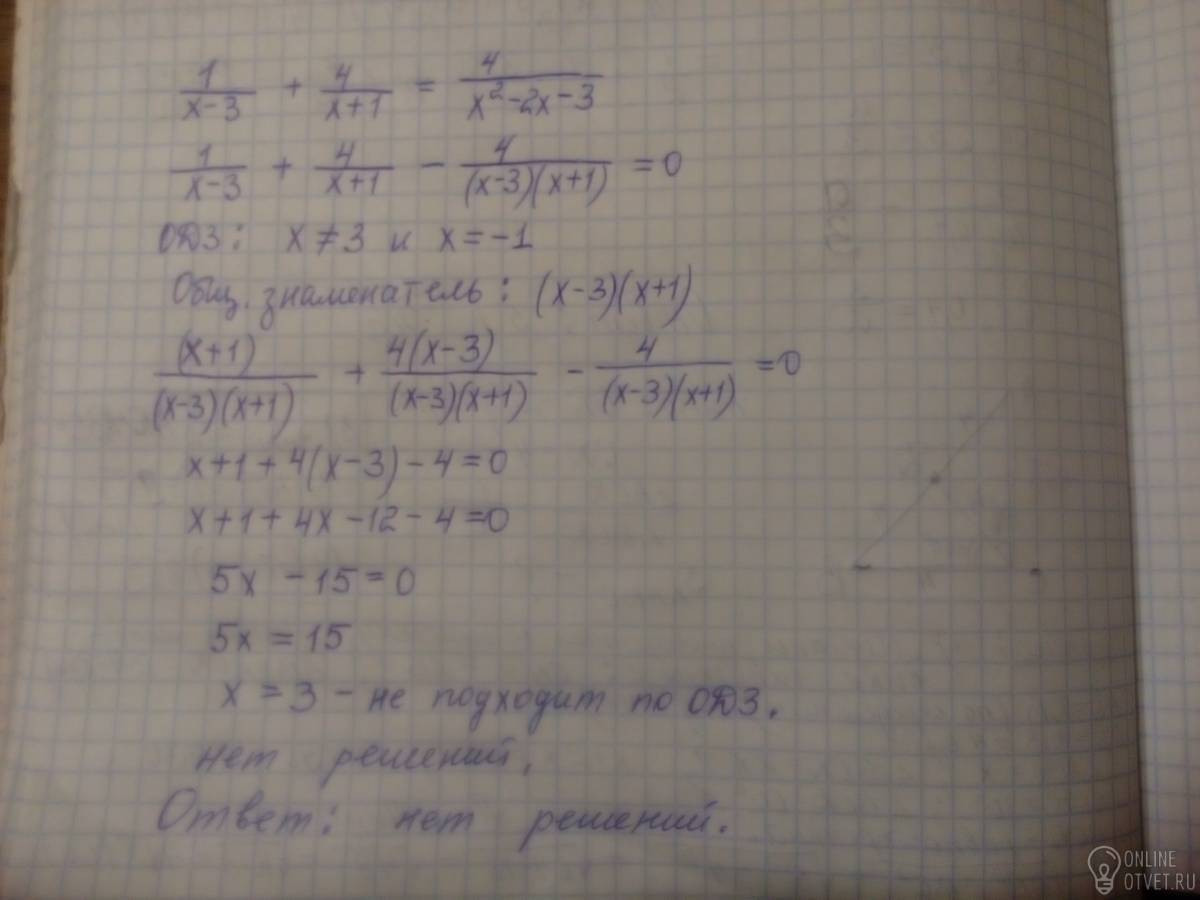 1/(x-3) + 4/(x+1) = 4/(x²-2x-3)
1/(x-3) + 4/(x+1) - 4/((x-3)(x+1)) = 0
ОДЗ: x ≠ 3 и x = -1
Общ. знаменатель: (x-3)(x+1)
(x+1)/((x-3)(x+1)) + 4(x-3)/((x-3)(x+1)) - 4/((x-3)(x+1)) = 0
x+1+4(x-3)-4=0
x+1+4x-12-4=0
5x - 15 = 0
5x = 15
x = 3 - не подходит по ОДЗ.
нет решений.
Ответ: нет решений.
ONLINE
OTVET.RU